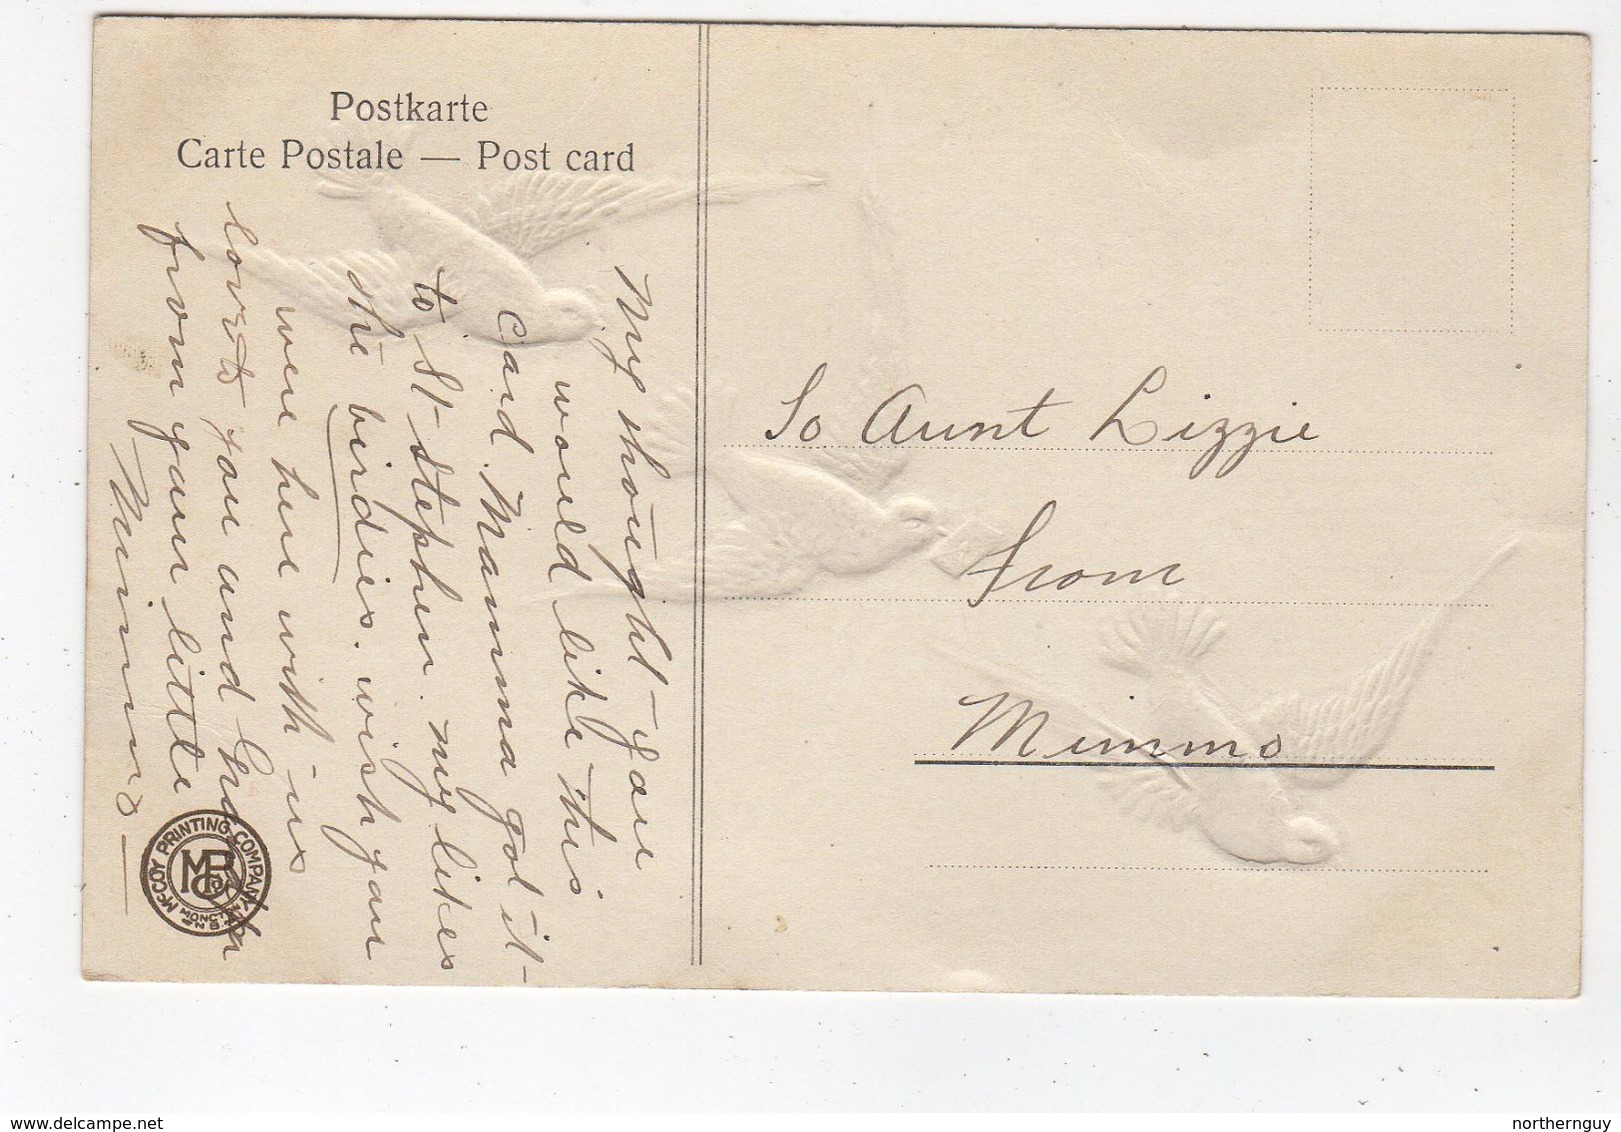 Postkarte
Carte Postale — Post card
My thought you
would like this
card. Mamma got it
to St Stephen. my likes
the birdies. wish you
were here with us
love to you and
from your little
Mimmo
To Aunt Lizzie
From
Mimmo
McCOY PRINTING COMPANY
MONCTON
N.B.
delcampe.net
northernguy